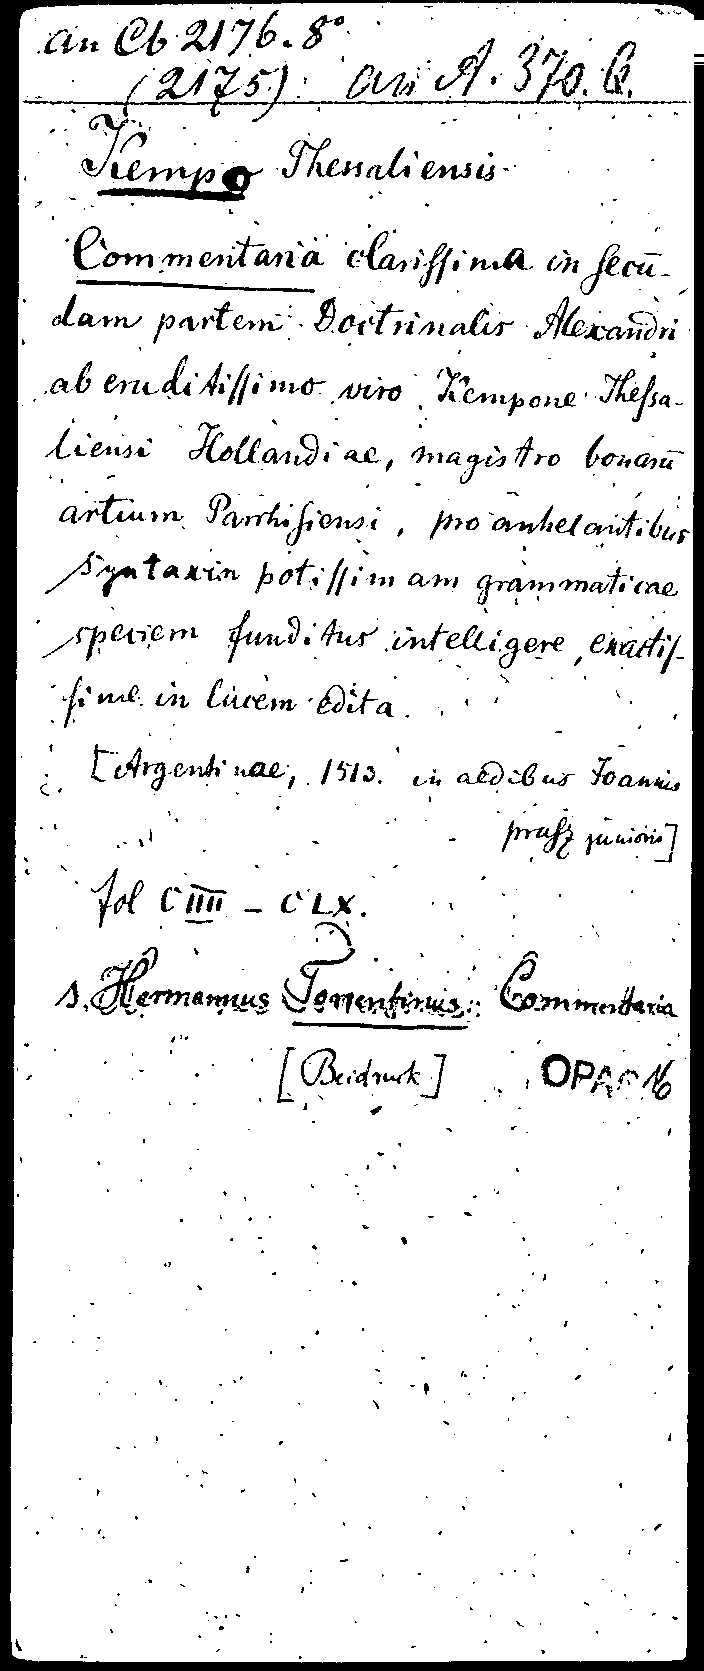 an Cb 2176.8°
(2175) an A. 370. Q.
Kempo Thessaliensis
Commentaria clariſſima in ſecū-
dam partem Doctrinalis Alexandri
ab eruditiſſimo viro Kempone Theſſa-
liensi Hollandiae, magistro bonarū
artium Parrhiſienſi, pro anhelantibus
syntaxin potiſſimam grammaticae
speciem funditus intelligere, exactiſ-
ſime in lucem edita.
[Argentinae, 1513. in aedibus Joannis
pruſz junioris]
fol CIIII - CLX.
s. Hermannus Torrentinus: Commentaria
[Beidruck] OPAC 16